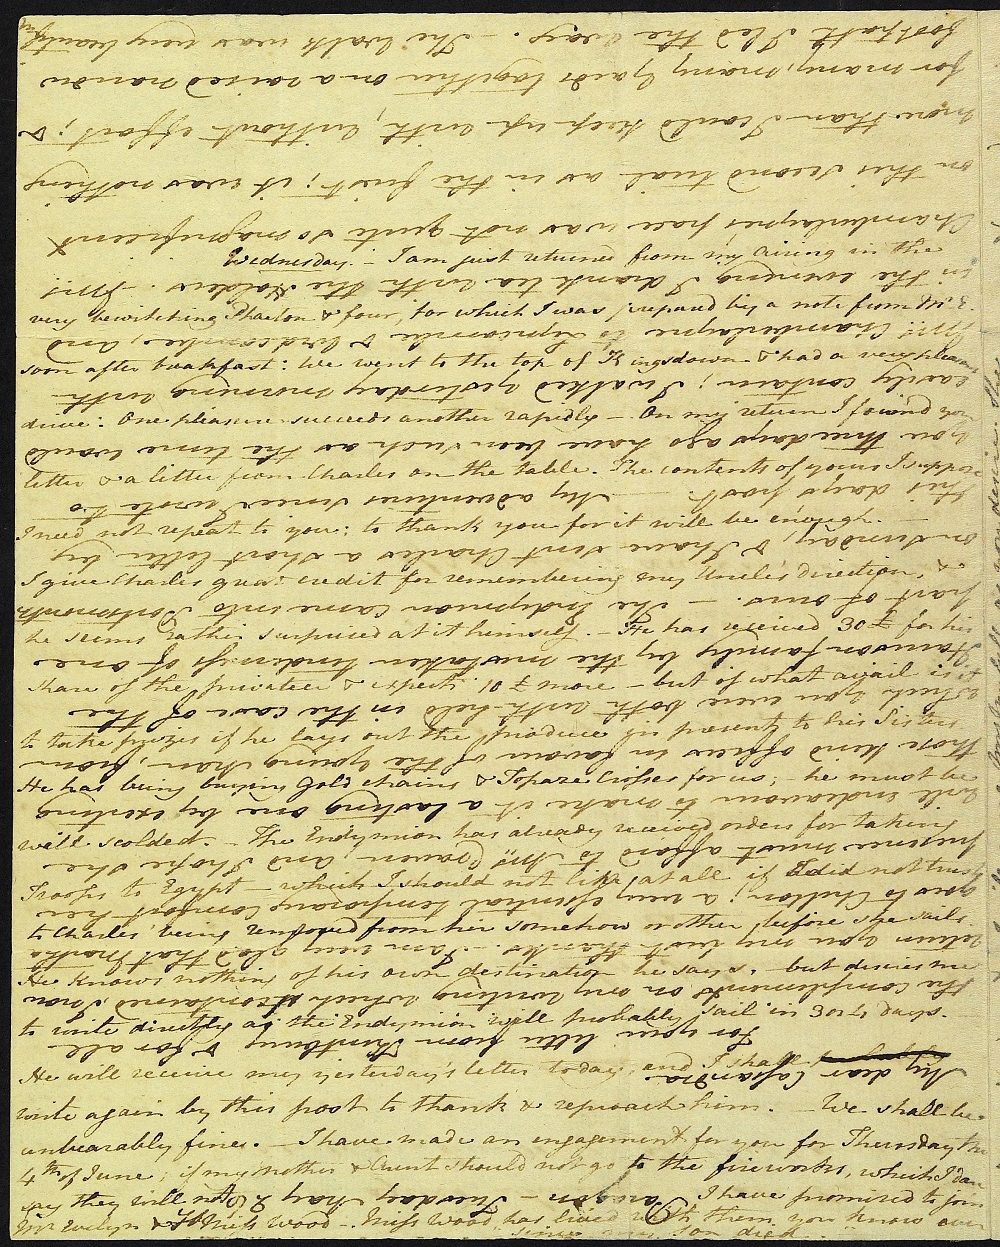 Paragon - Tuesday May 26
My dear Cassandra
For your letter from Kintbury & for all
the compliments on my writing which it contained, I now
return you my best thanks. - I am very glad that Martha
goes to Chilton; a very essential temporary comfort her
presence must afford to Mrs Craven, and I hope she
will endeavour to make it a lasting one by exerting
those kind offices in favour of the Young Man, from
which you were both with-held in the case of the
Harrison family by the mistaken tenderness of one
part of ours. - The Endymion came into Portsmouth
on Sunday, & I have sent Charles a short letter by
this days post. - My adventures since I wrote to
you three days ago have been such as the time would
easily contain; I walked yesterday morning with
Mrs Chamberlayne to Lyncombe & Widcombe, and
in the evening I drank tea with the Holders. - Mrs
Chamberlayne's pace was not quite so magnificent
on this second trial as in the first; it was nothing
more than I could keep up with, without effort; &
for many, many Yards together on a raised narrow
footpath I led the way. - The Walk was very beautiful
Wednesday. - I am just returned from my airing in the
very bewitching Phaeton & four, for which I was prepared by a note from Mr E.
soon after breakfast: We went to the top of Kingsdown - & had a very pleasant
drive: One pleasure succeeds another rapidly - On my return I found your
letter & a letter from Charles on the table. The contents of yours I suppose
I need not repeat to you; to thank you for it will be enough. -
I give Charles great credit for remembering my Uncle's direction, &
he seems rather surprised at it himself. - He has received 30£ for his
share of the privateer & expects 10£ more - but of what avail is it
to take prizes if he lays out the produce in presents to his Sisters.
He has been buying Gold chains & Topaze Crosses for us; - he must be
well scolded. - The Endymion has already received orders for taking
Troops to Egypt - which I should not like at all if I did not trust
to Charles' being removed from her somehow or other before she sails.
He knows nothing of his own destination he says, - but desires me
to write directly as the Endymion will probably sail in 3 or 4 days. -
He will receive my yesterday's letter today, and I shall
write again by this post to thank & reproach him. - We shall be
unbearably fine. - I have made an engagement for you for Thursday the
4th of June; if my Mother & Aunt should not go to the fireworks, which I dare
say they will not, I have promised to join
Mr Evelyn & Miss Wood - Miss Wood has lived with them you know ever
since my Son died